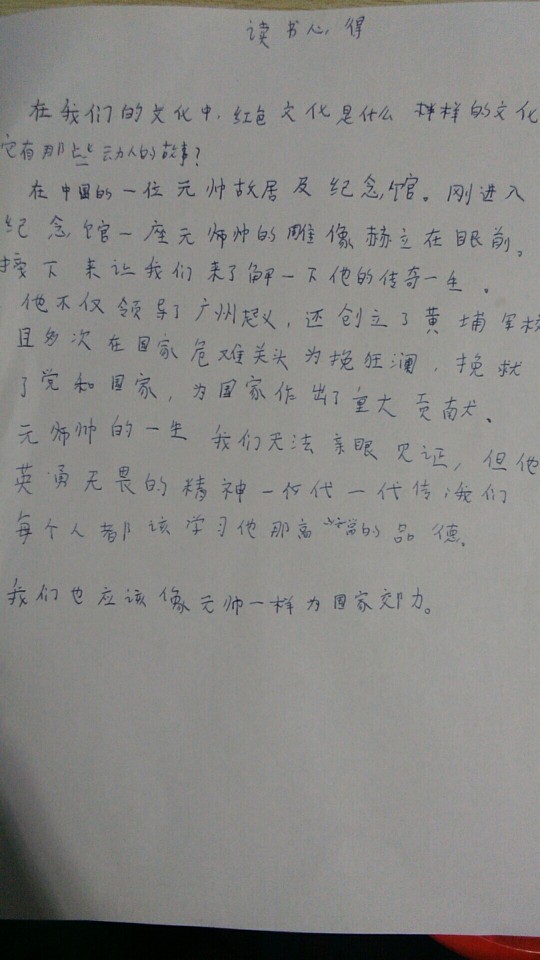 读书心得
在我们的文化中,红色文化是什么样样的文化
它有那些动人的故事?
在中国的一位元帅故居及纪念馆。刚进入
纪念馆一座元师帅的雕像赫立在眼前。
接下来让我们来了解一下他的传奇一生。
他不仅领导了广州起义,还创立了黄埔军校
且多次在国家危难关头为挽狂澜,挽救
了党和国家,为国家作出了重大贡献。
元师帅的一生我们无法亲眼见证,但他
英勇无畏的精神一代一代传,我们
每个人都该学习他那高尚的品德。
我们也应该像元帅一样为国家効力。